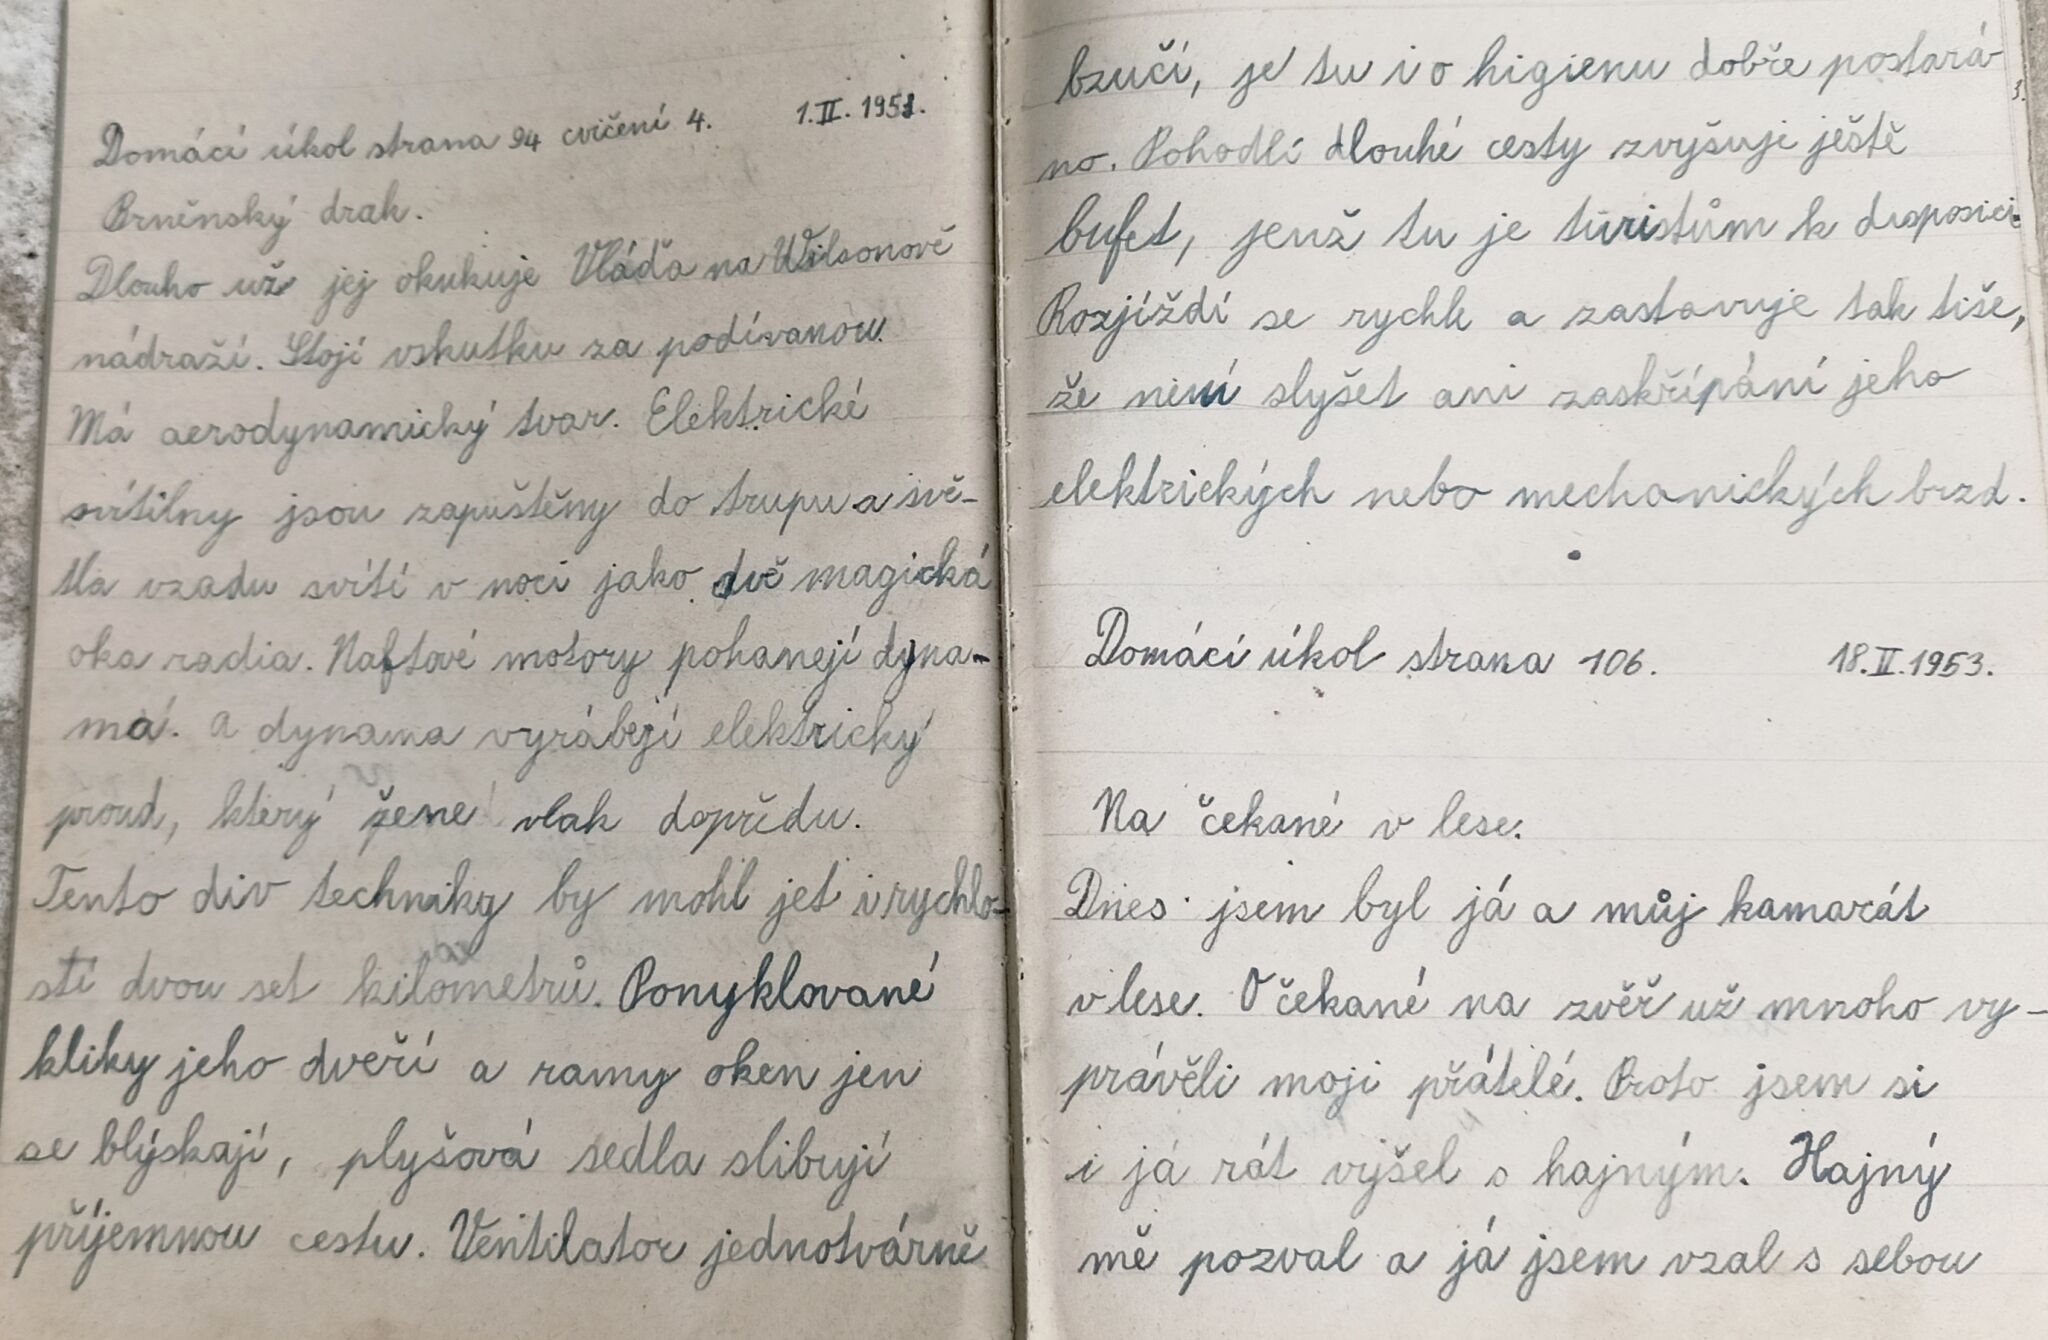 Domácí úkol strana 94 cvičení 4. 1.II.1953.
Brněnský drak.
Dlouho už jej okukuje Vláďa na Wilsonově
nádraží. Stojí vskutku za podívanou.
Má aerodynamický tvar. Elektrické
svítilny jsou zapuštěny do trupu a svě-
tla vzadu svítí v noci jako dvě magická
oka radia. Naftové motory pohanejí dyna-
má. a dynama vyrábějí elektrický
proud, který žene vlak dopředu.
Tento div techniky by mohl jet i rychlo-
stí dvou set kilometrů. Ponyklované
kliky jeho dveří a ramy oken jen
se blýskají, plyšová sedla slibují
příjemnou cestu. Ventilator jednotvárně
bzučí, je tu i o higienu dobře postará-
no. Pohodlí dlouhé cesty zvyšuji ještě
bufet, jenž tu je turistům k disposici.
Rozjíždí se rychle a zastavuje tak tiše,
že není slyšet ani zaskřípání jeho
elektrických nebo mechanických brzd.
Domácí úkol strana 106. 18.II.1953.
Na čekané v lese.
Dnes jsem byl já a můj kamarát
v lese. O čekané na zvěř už mnoho vy-
právěli moji přátelé. Proto jsem si
i já rát vyšel s hajným. Hajný
mě pozval a já jsem vzal s sebou